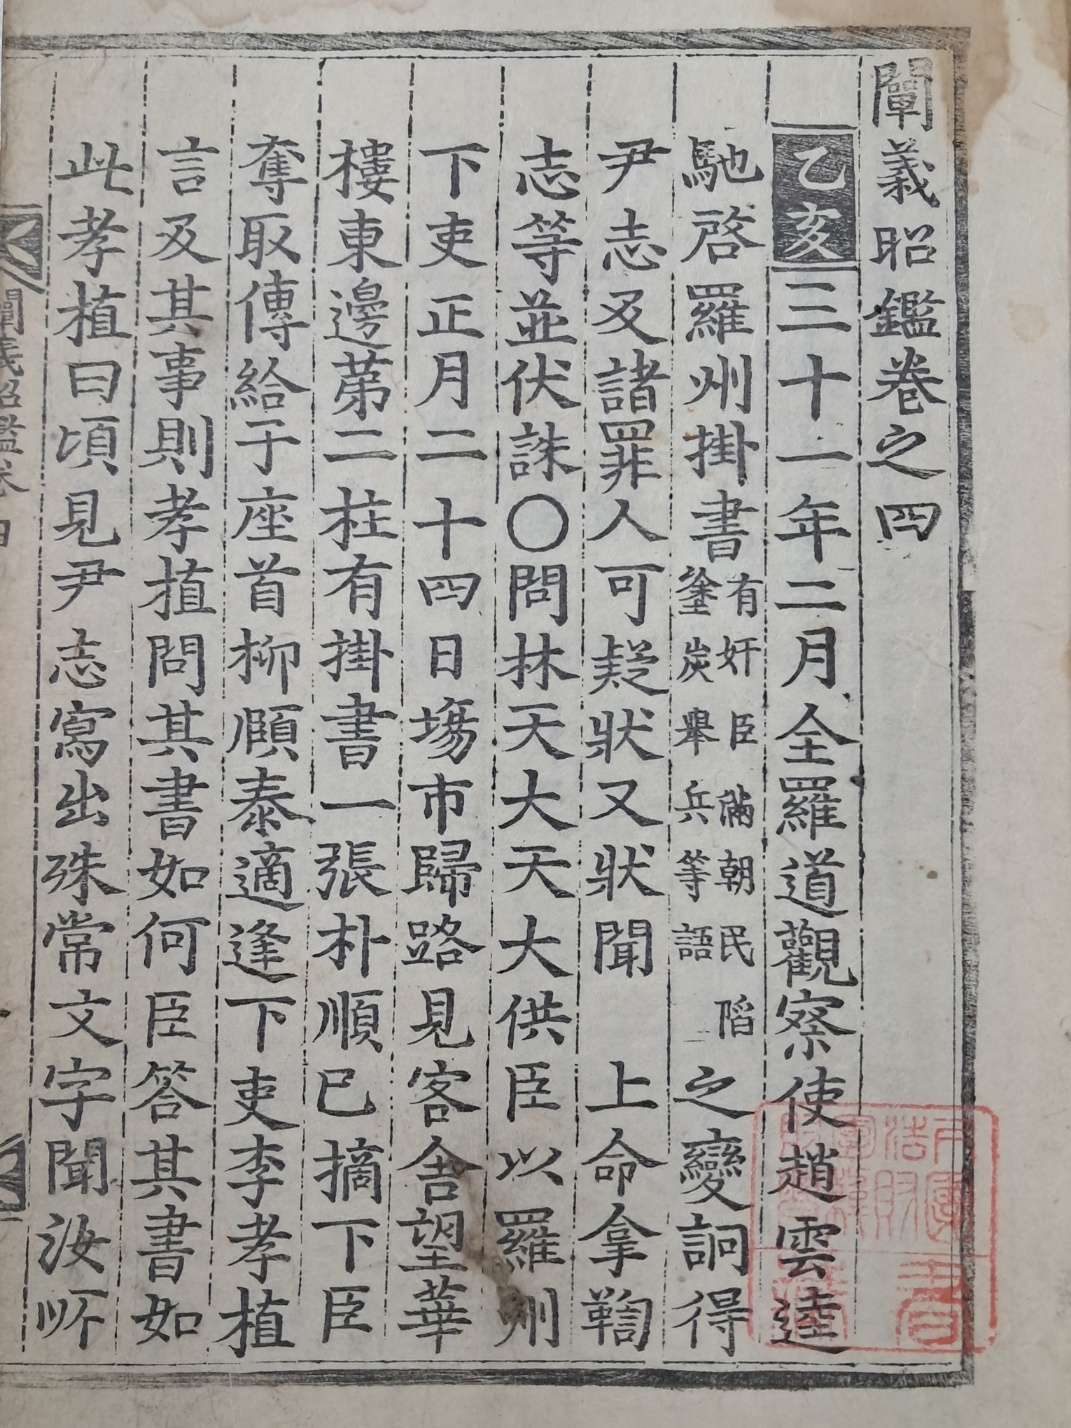 闡義昭鑑卷之四
乙亥三十一年二月全羅道觀察使趙雲逵
馳啓羅州掛書有奸臣滿朝民陷塗炭舉兵等語之變詗得
尹志及諸罪人可疑狀又狀聞 上命拿鞫
志等並伏誅〇問林天大天大供臣以羅州
下吏正月二十四日塲市歸路見客舍望華
樓東邊第二柱有掛書一張朴順已摘下臣
奪取傳給于座首柳願泰適逢下吏李孝植
言及其事則孝植問其書如何臣答其書如
此孝植曰頃見尹志寫出殊常文字聞汝所
闡義昭鑑卷四